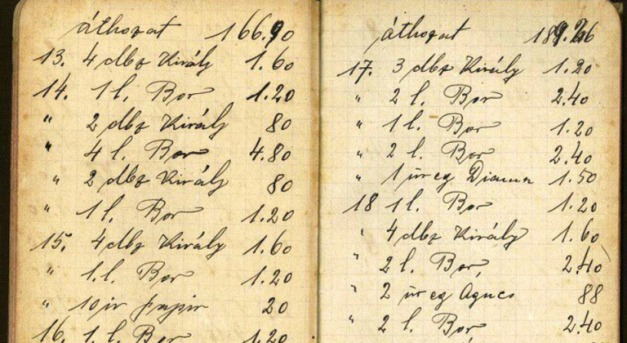 áthozat 166.90
13. 4 dbz Király 1.60
14. 1 l. Bor 1.20
" 2 dbz Király 80
" 4 l. Bor 4.80
" 2 dbz Király 80
" 1 l. Bor 1.20
15. 4 dbz Király 1.60
" 1 l. Bor 1.20
" 10 iv papir 20
16. 1 l. Bor 1.20
áthozat
17. 3 dbz Király 1.20
" 2 l. Bor 2.40
" 1 l. Bor 1.20
" 2 l. Bor 2.40
" 1 üveg Diana 1.50
18 1 l. Bor 1.20
" 4 dbz Király 1.60
" 2 l. Bor, 2.40
" 2 üveg 88
" 2 l. Bor 2.40